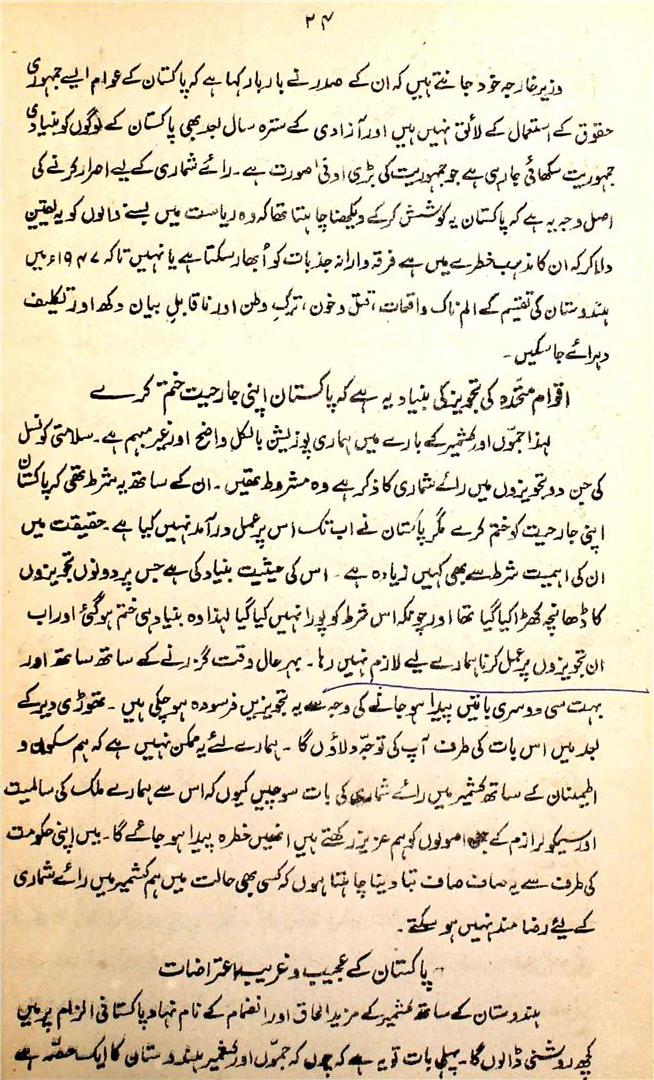 ۲۴
وزیر خارجہ خود جانتے ہیں کہ ان کے صدر نے بار بار کہا ہے کہ پاکستان کے عوام ایسے جمہوری
حقوق کے استعمال کے لائق نہیں ہیں اور آزادی کے سترہ سال بعد بھی پاکستان کے لوگوں کو بنیادی
جمہوریت سکھائی جا رہی ہے جو جمہوریت کی بڑی ادنیٰ صورت ہے۔ رائے شماری کے لیے اصرار کرنے کی
اصل وجہ یہ ہے کہ پاکستان یہ کوشش کر کے دیکھنا چاہتا تھا کہ وہ ریاست میں بسنے والوں کو یہ یقین
دلا کر کہ ان کا مذہب خطرے میں ہے فرقہ وارانہ جذبات کو اُبھار سکتا ہے یا نہیں تاکہ ۱۹۴۷ء میں
ہندوستان کی تقسیم کے الم ناک واقعات، قتل و خون، ترکِ وطن اور ناقابلِ بیان دکھ اور تکلیف
دہرائے جا سکیں۔
اقوام متحّدہ کی تجویز کی بنیاد یہ ہے کہ پاکستان اپنی جارحیت ختم کرے
لہذا جموّں اور کشمیر کے بارے میں ہماری پوزیشن بالکل واضح اور غیر مبہم ہے۔ سلامتی کونسل
کی جن دو تجویزوں میں رائے شماری کا ذکر ہے وہ مشروط تھیں۔ ان کے ساتھ یہ شرط تھی کہ پاکستان
اپنی جارحیت کو ختم کرے مگر پاکستان نے اب تک اس پر عمل در آمد نہیں کیا ہے۔ حقیقت میں
ان کی اہمیت شرط سے بھی کہیں زیادہ ہے۔ اس کی حیثیت بنیاد کی ہے جس پر دونوں تجویزوں
کا ڈھانچہ کھڑا کیا گیا تھا اور چونکہ اس شرط کو پورا نہیں کیا گیا لہذا وہ بنیاد ہی ختم ہو گئی اور اب
ان تجویزوں پر عمل کرنا ہمارے لیے لازم نہیں رہا۔ بہر حال وقت گزرنے کے ساتھ ساتھ اور
بہت سی دوسری باتیں پیدا ہو جانے کی وجہ سے یہ تجویزیں فرسودہ ہو چکی ہیں۔ تھوڑی دیر کے
بعد میں اس بات کی طرف آپ کی توجّہ دلاؤں گا۔ ہمارے لئے یہ ممکن نہیں ہے کہ ہم سکون و
اطمینان کے ساتھ کشمیر میں رائے شماری کی بات سوچیں کیوں کہ اس سے ہمارے ملک کی سالمیت
اور سیکولرازم کے جن اصولوں کو ہم عزیز رکھتے ہیں انھیں خطرہ پیدا ہو جائے گا۔ میں اپنی حکومت
کی طرف سے یہ صاف صاف بتا دینا چاہتا ہوں کہ کسی بھی حالت میں ہم کشمیر میں رائے شماری
کے لیئے رضا مند نہیں ہو سکتے۔
پاکستان کے عجیب و غریب اعتراضات
ہندوستان کے ساتھ کشمیر کے مزید الحاق اور انضمام کے نام نہاد پاکستانی الزام پر میں
کچھ روشنی ڈالوں گا۔ پہلی بات تو یہ ہے کہ چوں کہ جموّں اور کشمیر ہندوستان کا ایک حصّہ ہے